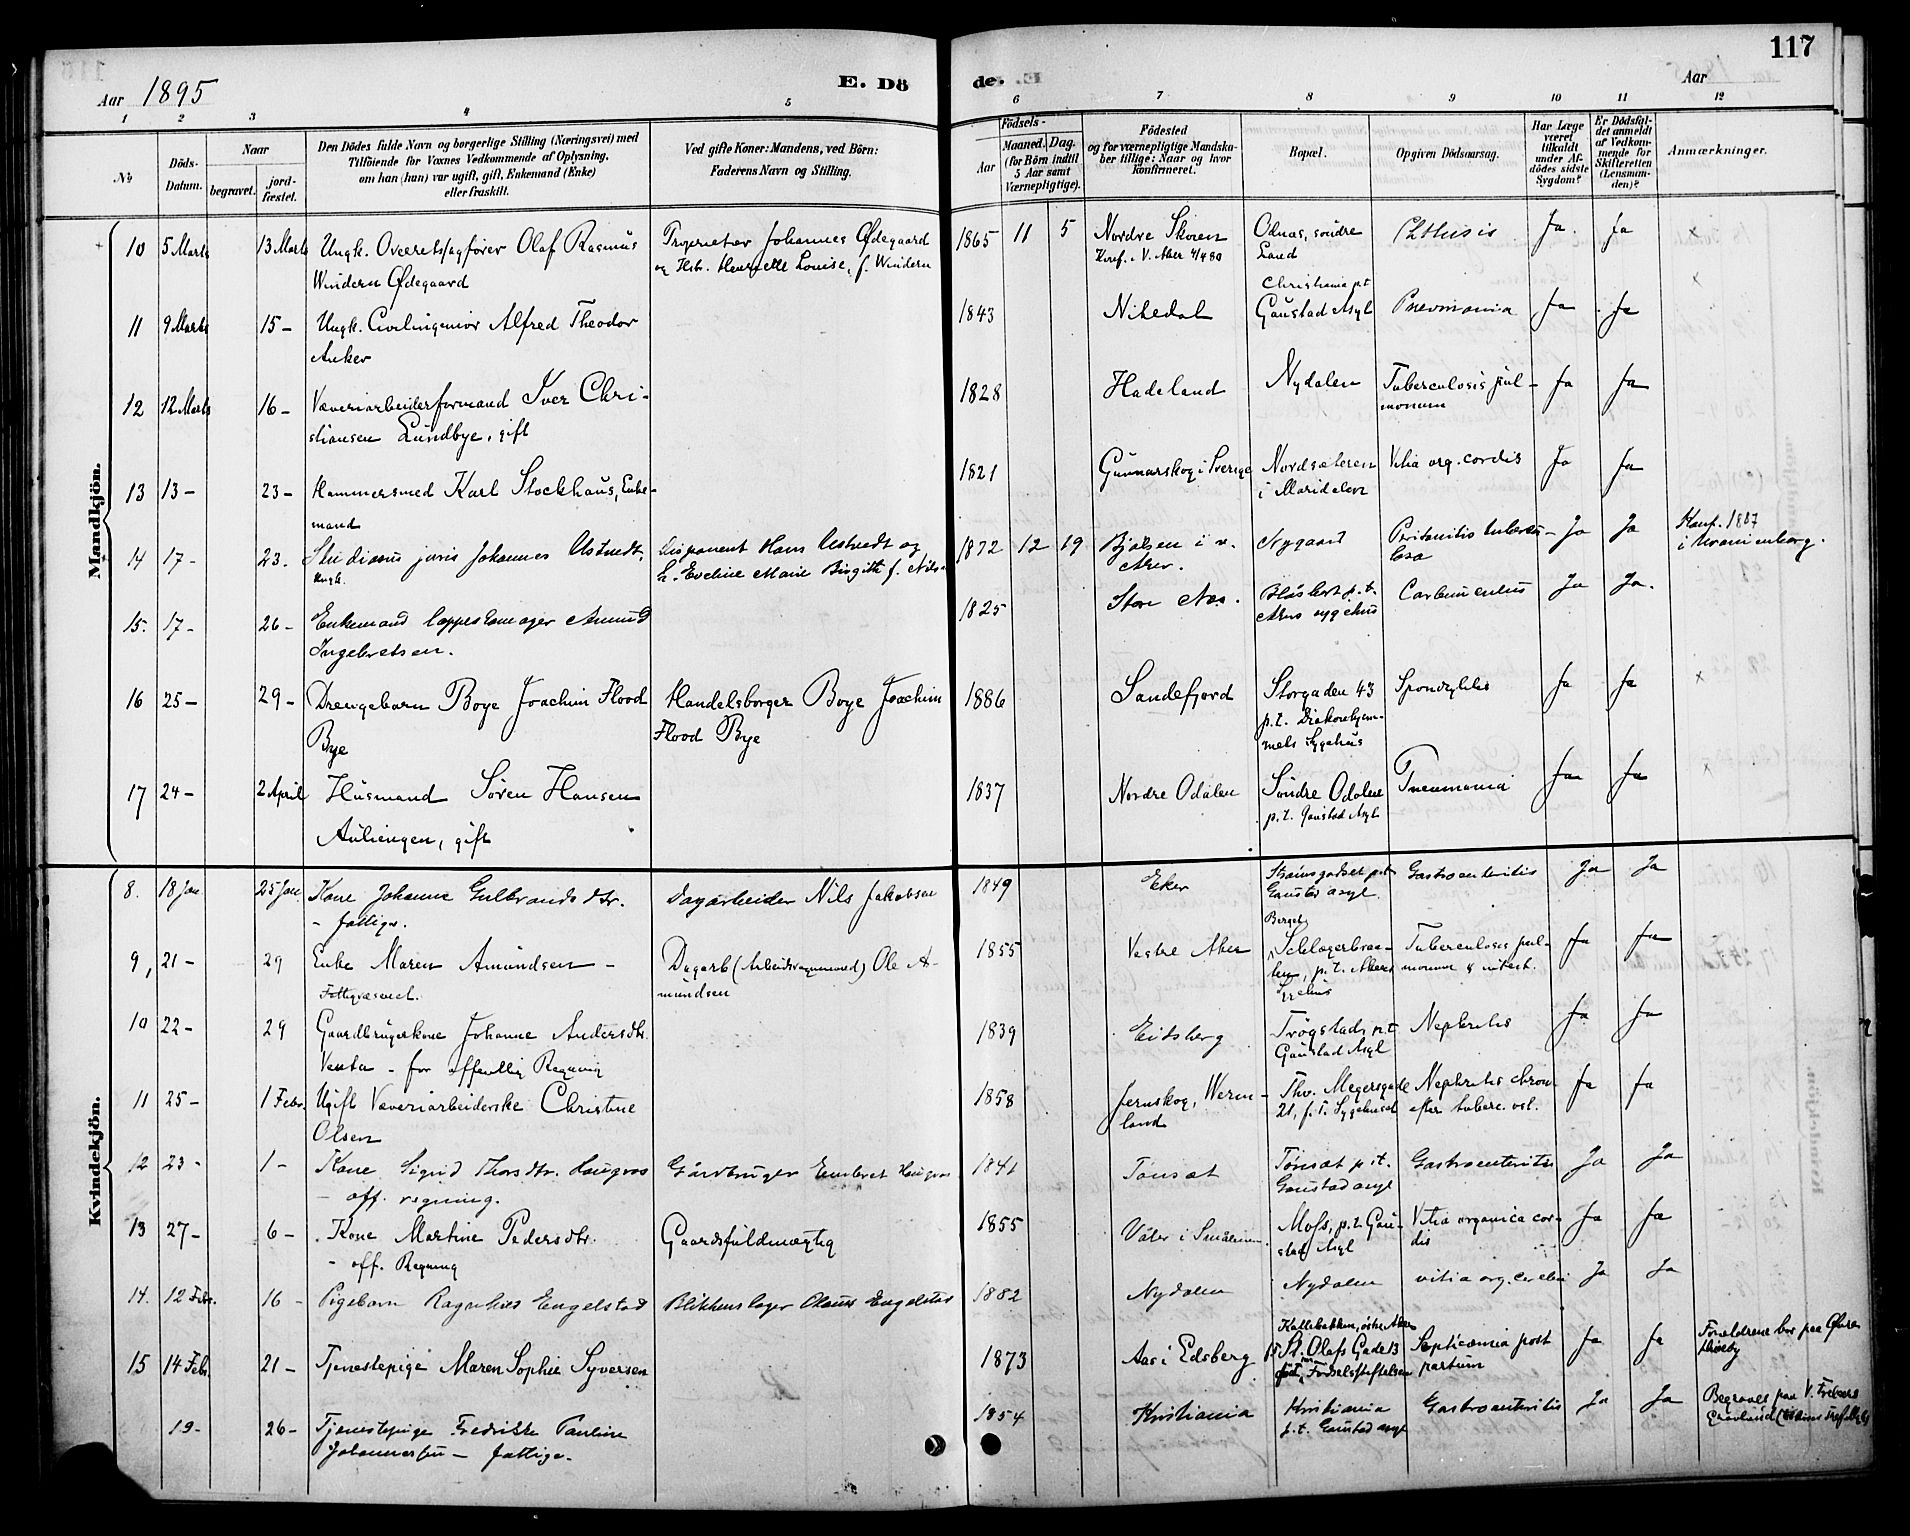 117
Aar 1895
E. Dö
de.
Aar
1 2 3 4 5 6 7 8 9 10 11 12
№
Döds-
Datum.
Naar
begravet.
jord-
fæstet.
Den Dödes fulde Navn og borgerlige Stilling (Næringsvei) med
Tilföiende for Voxnes Vedkommende af Oplysning,
om han (hun) var ugift, gift, Enkemand (Enke)
eller fraskilt.
Ved gifte Koner: Mandens, ved Börn:
Faderens Navn og Stilling.
Födsels-
Aar
Maaned. Dag.
(for Börn indtil
5 Aar samt
Værnepligtige).
Födested
og for værnepligtige Mandska-
ber tillige: Naar og hvor
konfirmeret.
Bopæl.
Opgiven Dödsaarsag.
Har Læge
været
tilkaldt
under Af-
dödes sidste
Sygdom?
Er Dödsfal-
det anmeldt
af Vedkom-
mende for
Skifteretten
(Lensman-
den)?
Anmærkninger.
Mandkjön.
10 5 Marts 13 Marts Ungk. Overretssagfører Olaf Rasmus Proprietær Johannes Ødegaard 1865 11 5 Nordre Skøien Odnas, søndre Phthisis Ja Ja x
Windern Ødegaard og Hstr. Henriette Louise, f. Windern Konf. i V. Aker 4/4 80 Land
11 9 Marts 15 - Ungk. Civilingeniør Alfred Theodor 1843 Nitedal Christiania p.t. Pneumonia Ja Ja x
Anker Gaustad Asyl
12 12 Marts 16 - Væveriarbeiderformand Iver Chri- 1828 Hadeland Nydalen Tuberculosis pul- Ja Ja
stiansen Lundbye, gift monum
13 13 - 23 - Hammersmed Karl Stockhaus, Enke- 1821 Gunnarskog i Sverige Nordsæteren Vitia org. cordis Ja Ja
mand i Maridalen
14 17 - 23. Studiosus juris Johannes Disponent Hans og 1872 12 19 Bjølsen i v. Nygaard Peritonitis tubercu- Ja Ja Konf. 1887
Ungk. h. Eveline Marie Birgitte f. Aker. losa i Uranienborg.
15. 17 - 26 - Enkemand Amund 1825 Store Næs. p.t. Carbunculus Ja Ja.
Ingebretsen. Akers sygehus
16 25 - 29 - Drengebarn Boye Joachim Flood Handelsborger Boye Joachim 1886 Sandefjord Storgaden 43 Spondylitis Ja Ja x
Bye Flood Bye p.t. Diakonhjem-
mets Sygehus
17 24 - 2 April Husmand Søren Hansen 1837 Nordre Odalen Søndre Odalen Pneumonia Ja Ja x
Auliengen, gift p.t. Gaustad Asyl
Kvindekjön.
8. 18 Jan 25 Jan. Kone Johanne Gulbrandsdtr. Dagarbeider Nils Jakobsen 1849 Eker Strømsgodset p.t. Gastroenteritis Ja Ja
- fattige. Gaustad asyl.
9, 21 - 29 Enke Maren Amundsen - Dagarb (Arbeidsvognmand) Ole A- 1855 Vestre Aker Berget Tuberculosis pul- Ja Ja
Fattigvæsenet. mundsen p.t. Akers monum & intest.
Sygehus
10 22 - 29 Gaardbrugerkone Johanne Andersdtr. 1839 Eidsberg Trøgstad p.t. Nephritis Ja Ja
- for offentlig Regning Gaustad Asyl
11 25 - 1 Febr. Ugift Væveriarbeiderske Christine 1858 Jernskog, Werm- Thv. Meyersgade Nephritis chron Ja Ja
Olsen land 21, p.t. Sygehuset efter
12 23 - 1 - Kone Sigrid Thorsdtr. Haugros Gårdbruger Embret Haugros 1841 Tønsæt Tønsæt p.t. Gastroenteritis Ja Ja
- off. regning. Gaustad asyl
13 27 - 6 - Kone Martine Pedersdtr. Gaardsfuldmægtig 1855 Våler i Smålenene. Moss, p.t. Gau- Vitia organica cor- Ja Ja
- off. Regning stad Asyl dis
14. 12 Febr. 16 - Pigebarn Ragnhild Engelstad Blikkenslager Olaus Engelstad 1882 Nydalen Nydalen vitia org. cordis Ja Ja
15 14 Febr. 21 - Tjenestepige Maren Sophie Syversen 1873 Aas i Edsberg St. Olafs Gade 13 Septicæmia post Ja Ja Forældrene bor paa Øvre
Fødselsstiftelsen partum
19 - 26 - Tjenestepige Fredrikke Pauline 1854 Kristiania Kristiania Gastroenteritis Ja Ja Begraves paa V. Frelsers
Johannessen - fattige. p.t. Gaustad asyl Gravlund